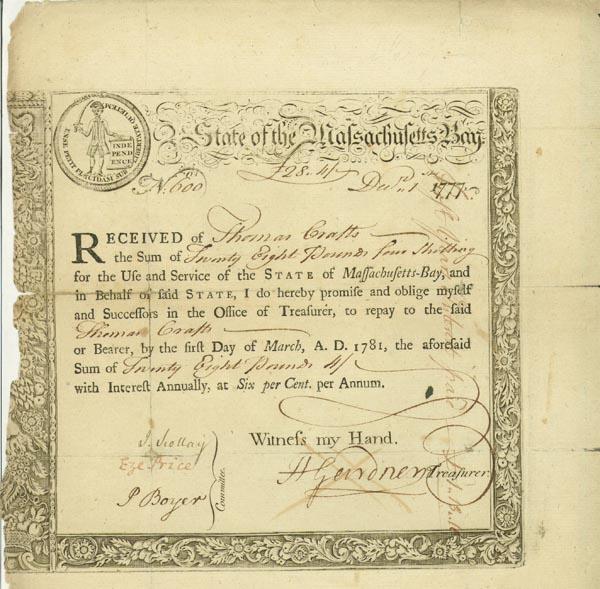 ENSE PETIT PLACIDAM SUB LIBERTATE QUIETEM
INDE
PEND
ENCE
State of the Maſſachuſetts Bay.
No. 600
£28..4/
Decr. 1st 1777.
RECEIVED of Thomas Crafts
the Sum of Twenty Eight Pounds four Shilling
for the Uſe and Service of the STATE of Maſſachuſetts-Bay, and
in Behalf of ſaid STATE, I do hereby promiſe and oblige myſelf
and Succeſſors in the Office of Treaſurer, to repay to the ſaid
Thomas Crafts
or Bearer, by the firſt Day of March, A. D. 1781, the aforeſaid
Sum of Twenty Eight Pounds 4/
with Intereſt Annually, at Six per Cent. per Annum.
Witneſs my Hand.
J. Scollay
Eze. Price
P Boyer
Committee.
H Gardner Treaſurer.